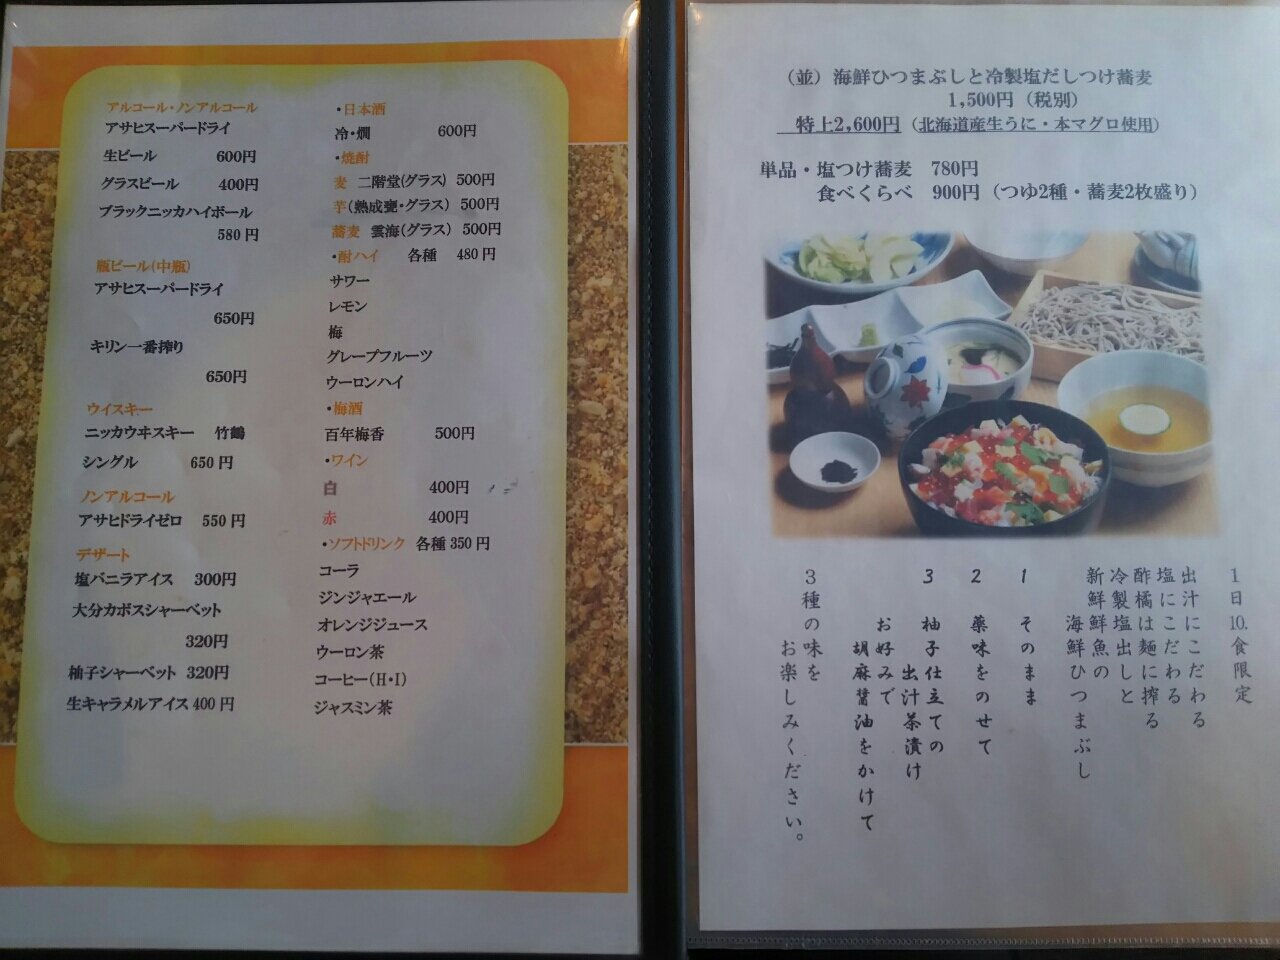 アルコール・ノンアルコール
アサヒスーパードライ
生ビール 600円
グラスビール 400円
ブラックニッカハイボール
580円
瓶ビール(中瓶)
アサヒスーパードライ
650円
キリン一番搾り
650円
ウイスキー
ニッカウヰスキー 竹鶴
シングル 650円
ノンアルコール
アサヒドライゼロ 550円
デザート
塩バニラアイス 300円
大分カボスシャーベット
320円
柚子シャーベット 320円
生キャラメルアイス 400円
・日本酒
冷・燗 600円
・焼酎
麦 二階堂(グラス) 500円
芋(熟成甕・グラス) 500円
蕎麦 雲海(グラス) 500円
・酎ハイ 各種 480円
サワー
レモン
梅
グレープフルーツ
ウーロンハイ
・梅酒
百年梅香 500円
・ワイン
白 400円
赤 400円
・ソフトドリンク 各種350円
コーラ
ジンジャエール
オレンジジュース
ウーロン茶
コーヒー(H・I)
ジャスミン茶
（並）海鮮ひつまぶしと冷製塩だしつけ蕎麦
1,500円（税別）
特上2,600円（北海道産生うに・本マグロ使用）
単品・塩つけ蕎麦 780円
食べくらべ 900円（つゆ2種・蕎麦2枚盛り）
1日10.食限定
出汁にこだわる
塩にこだわる
酢橘は麺に搾る
冷製塩出しと
新鮮鮮魚の
海鮮ひつまぶし
1 そのまま
2 薬味をのせて
3 柚子仕立ての
出汁茶漬け
お好みで
胡麻醤油をかけて
3種の味を
お楽しみください。